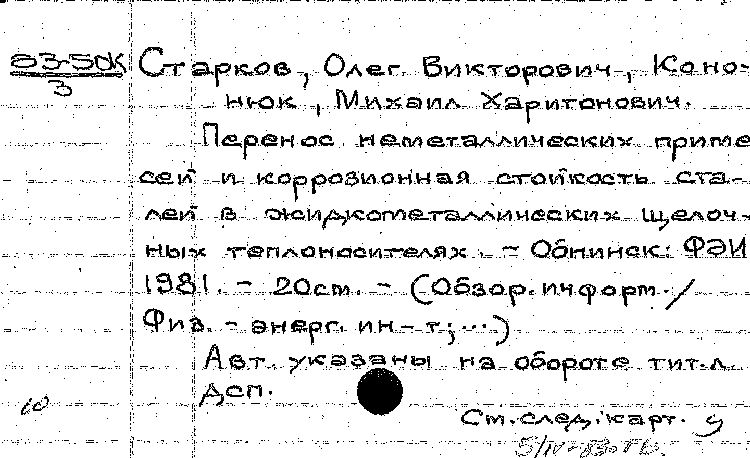 Э3-5ОК
3
Старков, Олег Викторович, Коно-
нюк, Михаил Харитонович.
Перенос неметаллических приме
сей и коррозионная стойкость ста-
лей в жидкометаллических щелоч-
ных теплоносителях. - Обнинск: ФЭИ
1981. - 20ст. - (Обзор. информ./
Физ. - энерг. ин-т; ...)
Авт. указаны на обороте тит. л
ДСП.
10
Ст. след. карт.